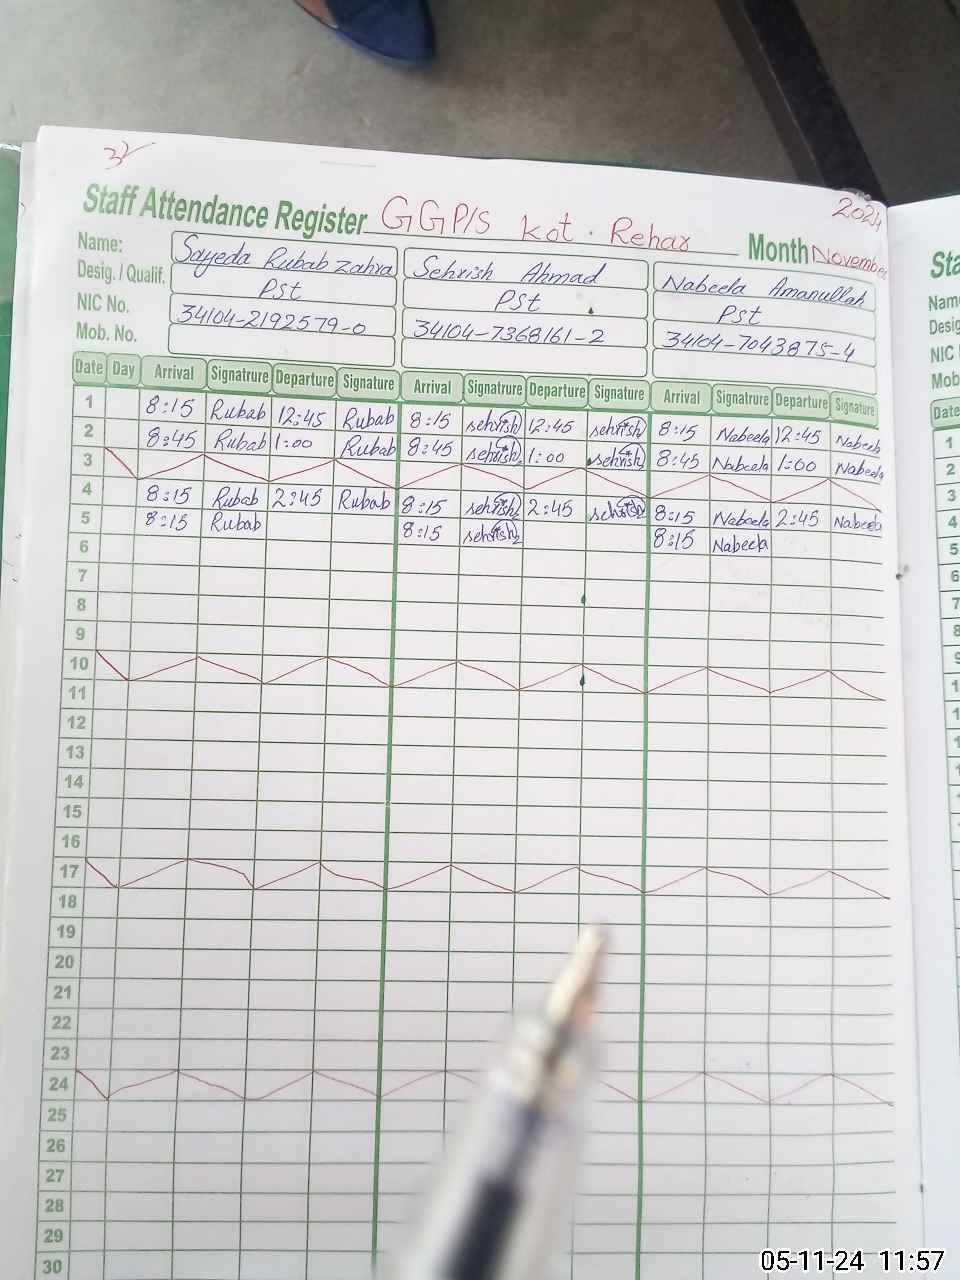 32
2024
Staff Attendance Register GGP/S Kot. Rehar Month November
Name: Sayeda Rubab Zahra Sehrish Ahmad Nabeela Amanullah
Desig. / Qualif. Pst Pst Pst
NIC No. 34104-2192579-0 34104-7368161-2 34104-7043875-4
Mob. No.
Date Day Arrival Signatrure Departure Signature Arrival Signatrure Departure Signature Arrival Signatrure Departure Signature
1 8:15 Rubab 12:45 Rubab 8:15 sehrish 12:45 sehrish 8:15 Nabeela 12:45 Nabeela
2 8:45 Rubab 1:00 Rubab 8:45 sehrish 1:00 sehrish 8:45 Nabeela 1:00 Nabeela
3
4 8:15 Rubab 2:45 Rubab 8:15 sehrish 2:45 sehrish 8:15 Nabeela 2:45 Nabeela
5 8:15 Rubab 8:15 sehrish 8:15 Nabeela
6
7
8
9
10
11
12
13
14
15
16
17
18
19
20
21
22
23
24
25
26
27
28
29
30
Sta
Name
Desig
NIC
Mob
Date
1
2
3
4
5
6
7
8
9
05-11-24 11:57